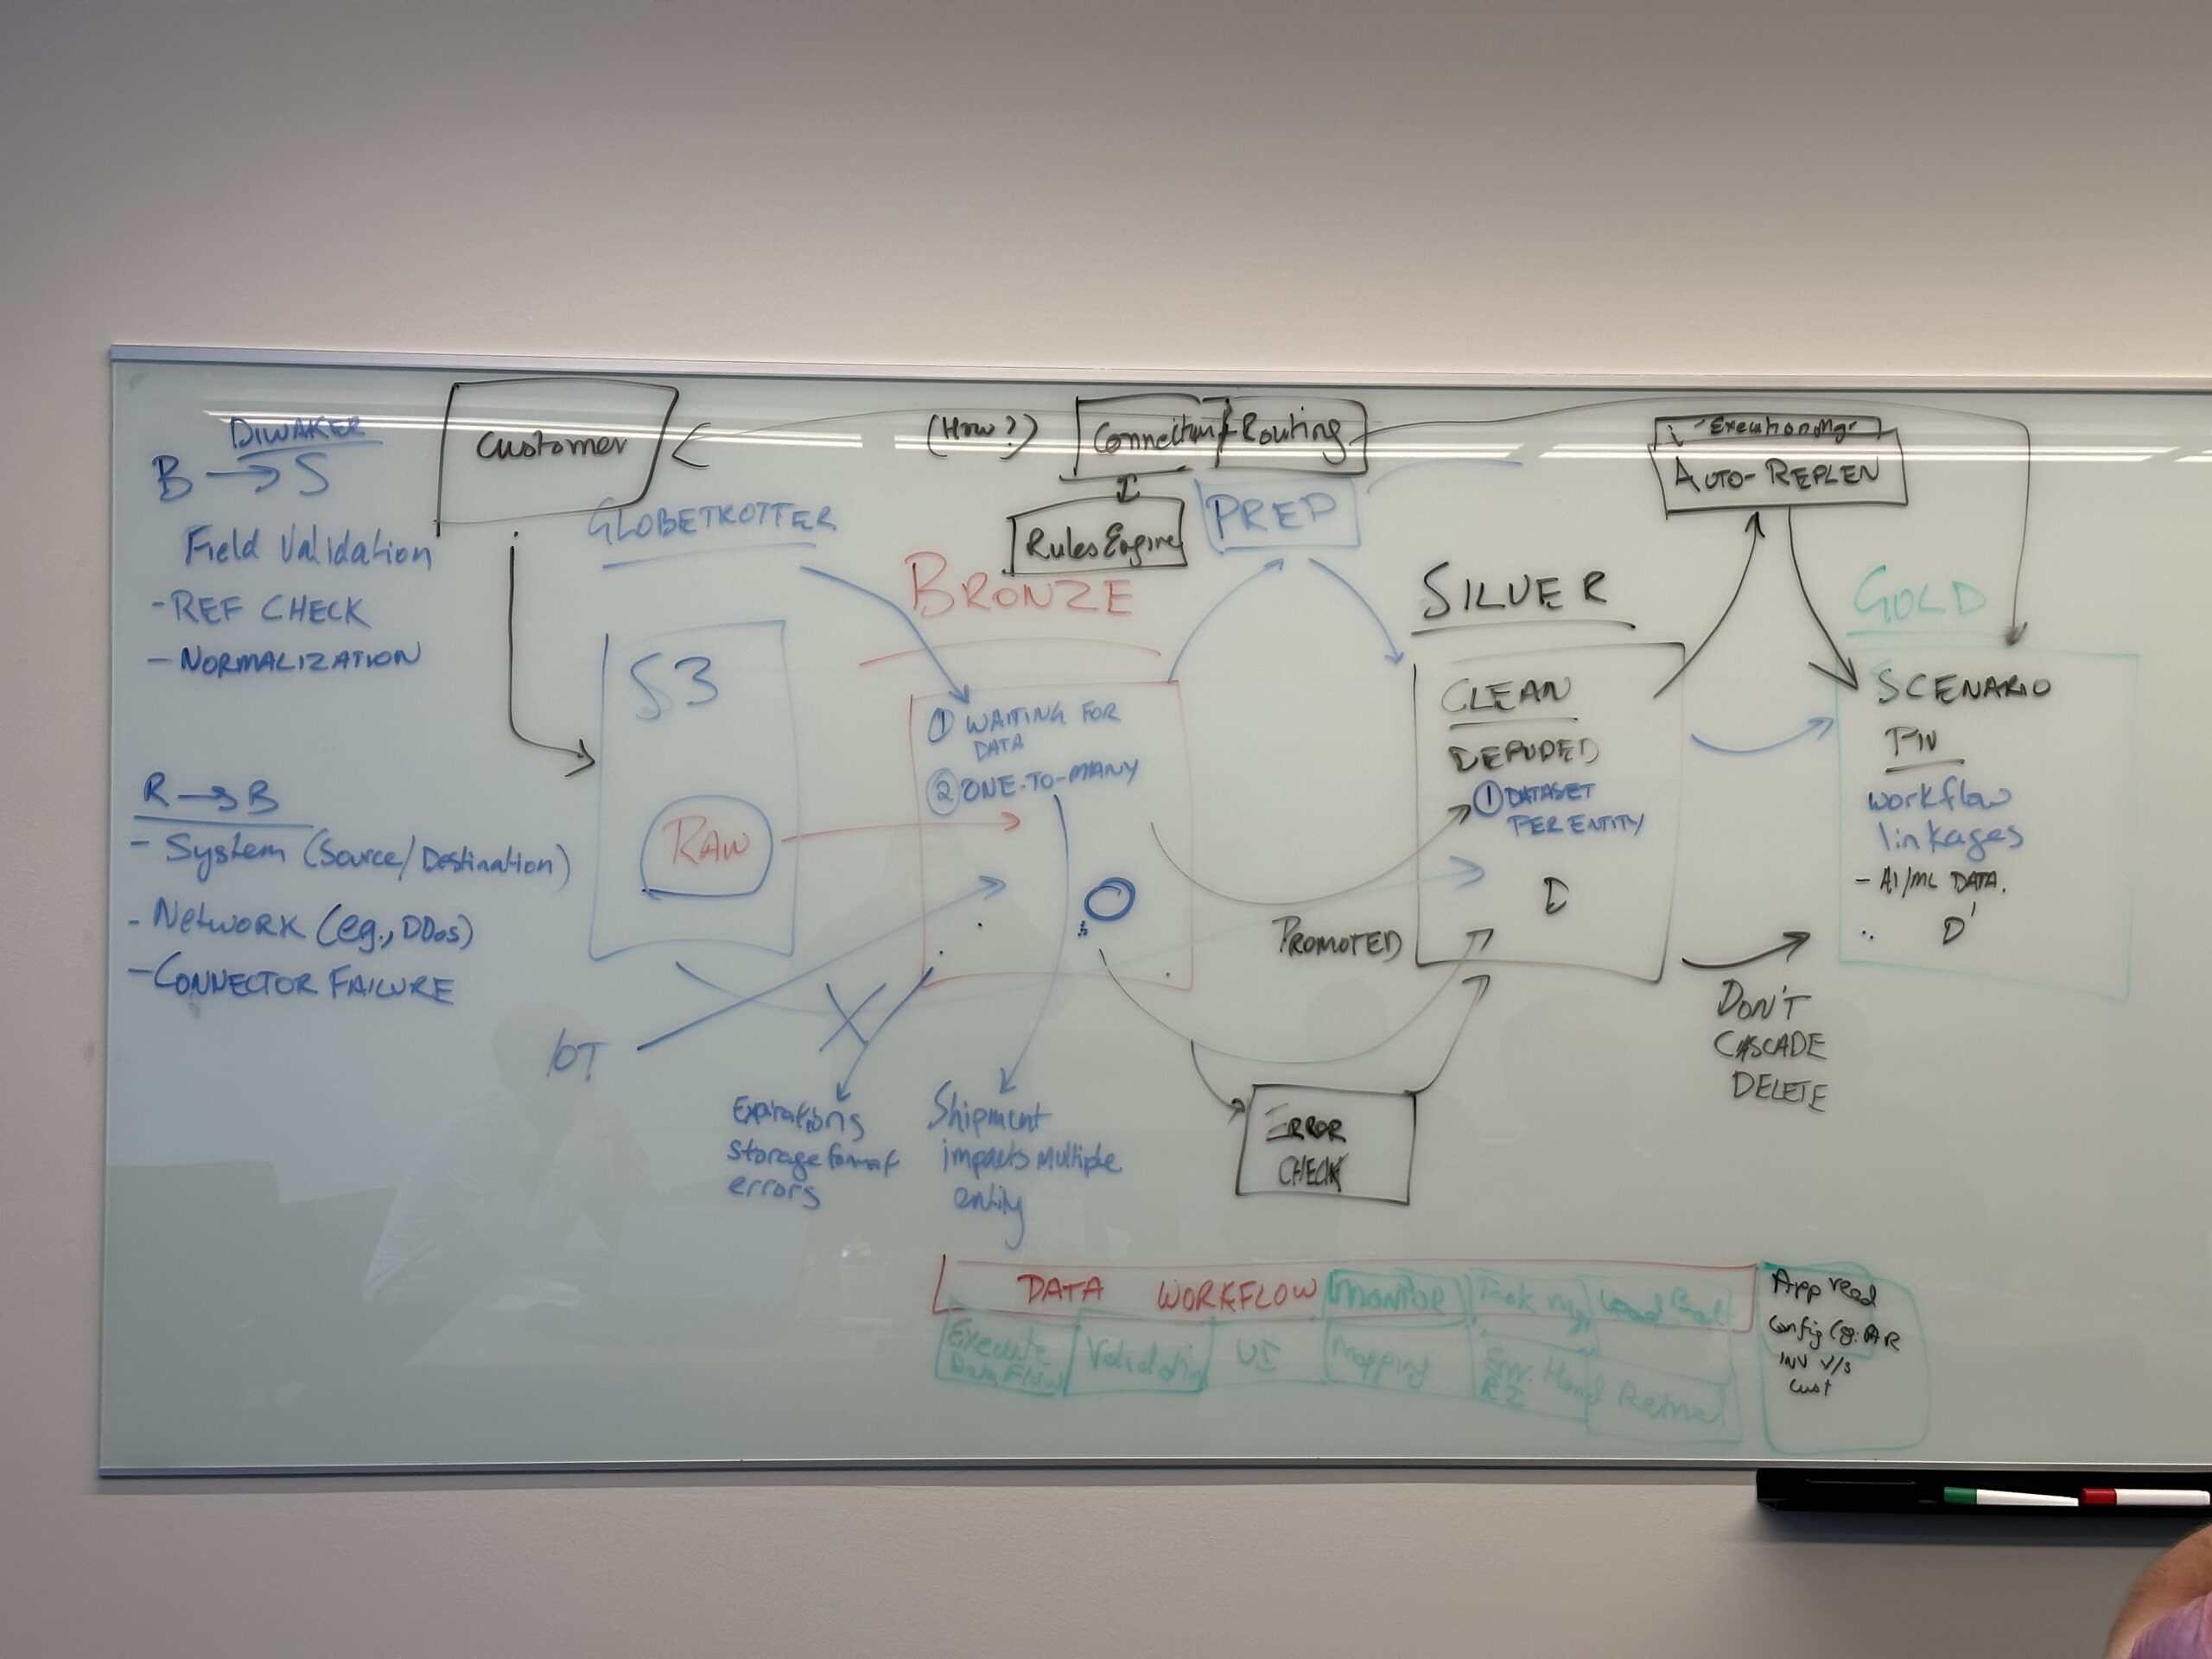 DIWAKER
B → S
Field Validation
- REF CHECK
- NORMALIZATION
R → B
- System (Source/Destination)
- Network (eg., DDos)
- CONNECTOR FAILURE
Customer
(How?)
Connection/Routing
Rules Engine
GLOBETROTTER
PREP
Execution Mgr
AUTO-REPLEN
S3
RAW
IOT
BRONZE
① WAITING FOR
DATA
② ONE-TO-MANY
Expirations
storage format
errors
Shipment
impacts multiple
entity
PROMOTED
ERROR
CHECK
SILVER
CLEAN
DEPUDED
① DATASET
PER ENTITY
D
DON'T
CASCADE
DELETE
GOLD
SCENARIO
PIV
workflow
linkages
- AI/ML DATA.
D'
DATA WORKFLOW
Monitor
Task Mg
Load Bal
Execute
Data Flow
Validatin
UI
Mapping
Err. Hand
RI
App read
Config (g: AR
INV V/s
Cust